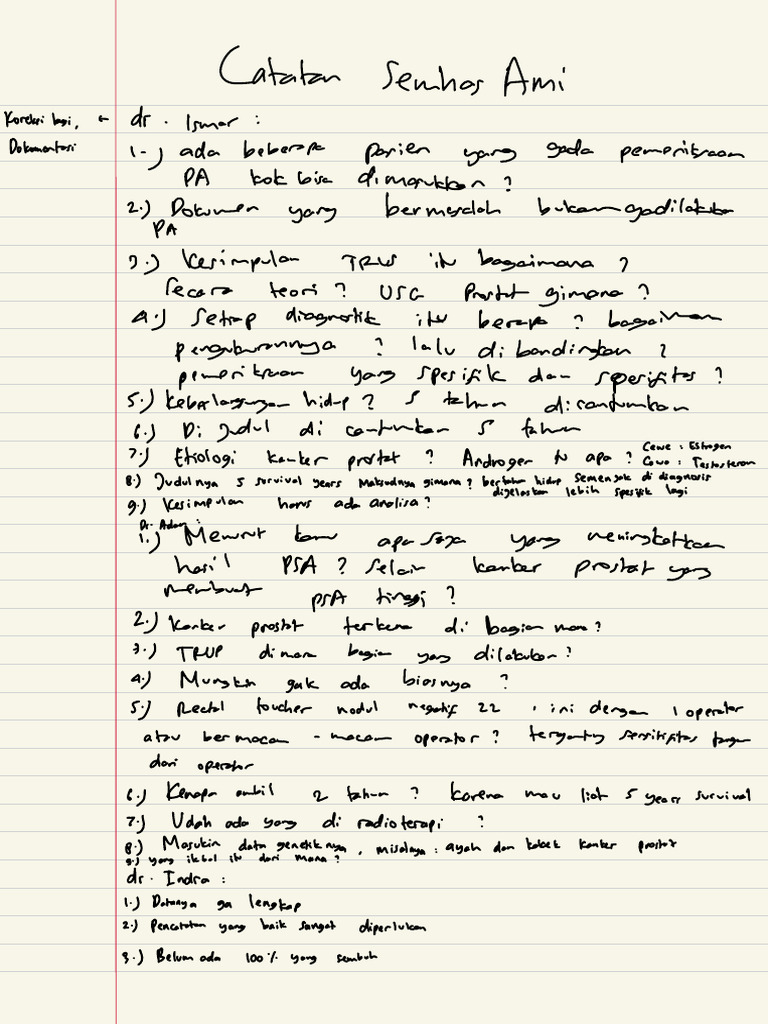 Catatan Semhas Ami
Koreksi lagi, ← dr. Ismar :
Dokumentasi
1.) ada beberapa pasien yang gada pemeriksaan
PA kok bisa dimasukkan ?
2.) Dokumen yang bermasalah bukan gadilakukan
PA
3.) Kesimpulan TRUS itu bagaimana ?
Secara teori ? USG Prostat gimana ?
4.) Setiap diagnostik itu berapa ? bagaiman
pengukurannya ? lalu di bandingkan ?
pemeriksaan yang spesifik dan spesifitas ?
5.) Keberlangsungan hidup ? 5 tahun dicantumkan
6.) Di Judul di cantumkan 5 tahun
7.) Etiologi kanker prostat ? Androgen tu apa ?
Cewe : Estrogen
Cowo : Testosteron
8.) Judulnya 5 survival years Maksudnya gimana ? bertahan hidup semenjak di diagnosis
dijelaskan lebih spesifik lagi
9.) Kesimpulan harus ada analisa ?
Dr. Adam :
1.) Menurut kamu apa saja yang meningkatkan
hasil PSA ? Selain kanker prostat yang
membuat PSA tinggi ?
2.) Kanker prostat terkena di bagian mana ?
3.) TRUP dimana bagian yang dilakukan ?
4.) Mungkin gak ada biasnya ?
5.) Rectal toucher nodul negatif 22 , ini dengan 1 operator
atau bermacam - macam operator ? tergantung sensitifitas tangan
dari operator
6.) Kenapa ambil 2 tahun ? Karena mau liat 5 years survival
7.) Udah ada yang di radioterapi ?
8.) Masukin data genetiknya , misalnya : ayah dan kakek kanker prostat
9.) yang itu dari mana ?
dr. Indra :
1.) Datanya ga lengkap
2.) Pencatatan yang baik sangat diperlukan
3.) Belum ada 100% yang sembuh